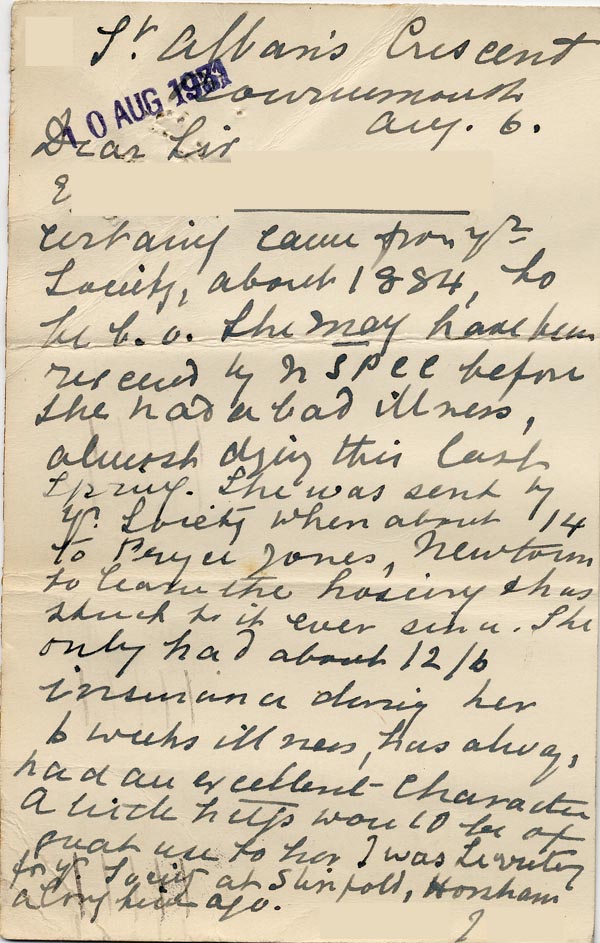 St. Alban's Crescent
10 AUG 1931
Bournemouth
Aug. 6.
Dear Sir
E
certainly came from yr
Society, about 1884, to
be b. o. She may have been
rescued by NSPCC before
She had a bad illness,
almost dying this last
Spring. She was sent by
yr. Society when about 14
to Pryce Jones, Newtown
to learn the hosiery & has
stuck to it ever since. She
only had about 12/6
insurance during her
6 weeks illness, has always
had an excellent character
A little help would be of
great use to her I was Secretary
for yr. Society at Slinfold, Horsham
a long time ago.